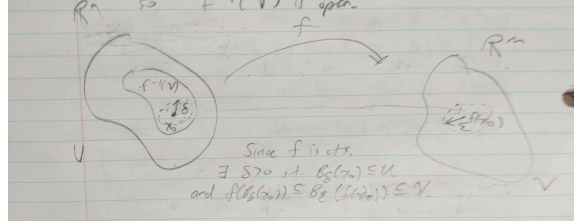 Rⁿ so f⁻¹(V) is open
f
Rᵐ
f⁻¹(V)
δ
x₀
ε
f(x₀)
U
V
Since f is cts.
∃ δ>0 s.t. B_δ(x₀) ⊆ U
and f(B_δ(x₀)) ⊆ B_ε(f(x₀)) ⊆ V